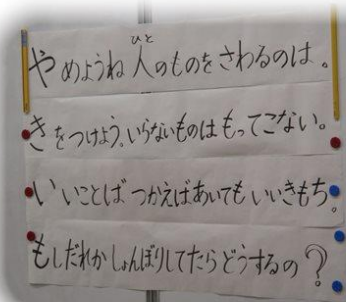 やめようね人のものをさわるのは。
きをつけよう。いらないものはもってこない。
いいことばつかえばあいてもいいきもち。
もしだれかしょんぼりしてたらどうするの?